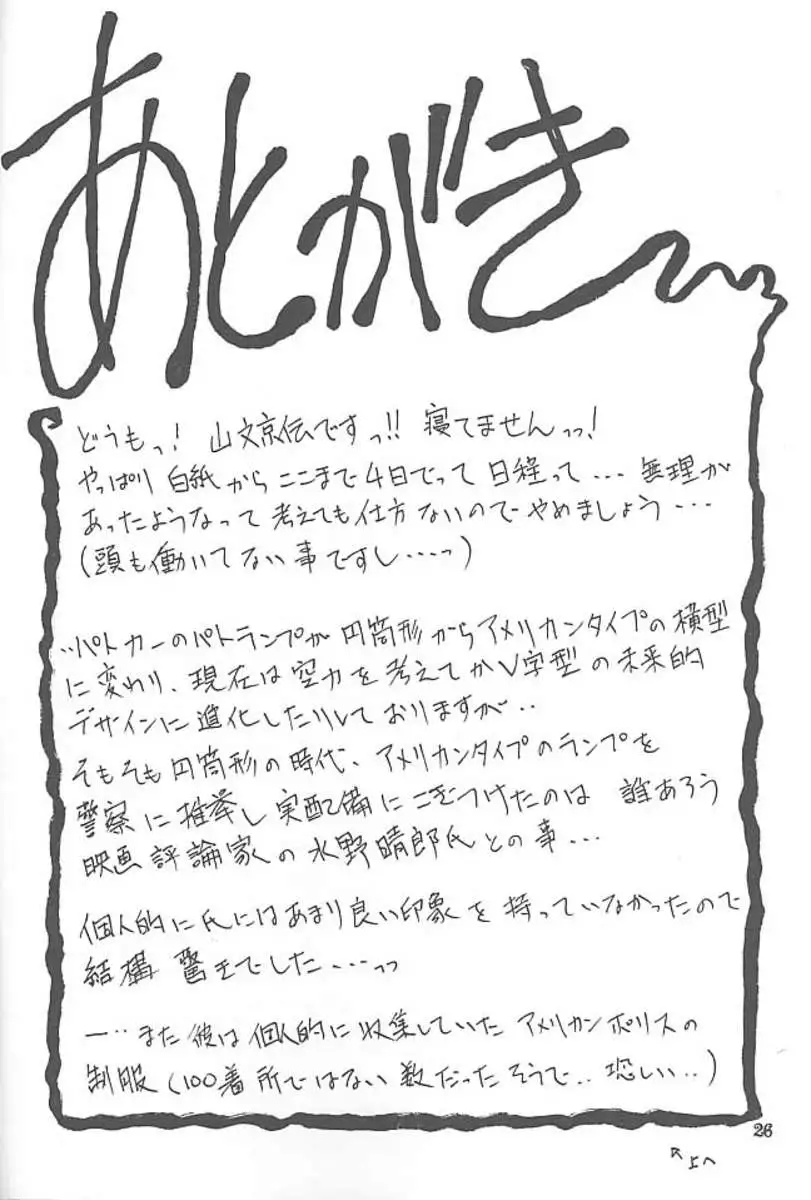 あとがき
どうもっ! 山文京伝ですっ!! 寝てませんっっ!
やっぱり 白紙から ここまで 4日でって 日程って... 無理が
あったようなって 考えても 仕方ないので やめましょう...
(頭も働いてない事ですし....っ)
..パトカーのパトランプが 円筒形から アメリカンタイプの 横型
に変わり、現在は 空力を考えてか V字型の未来的
デザインに 進化したりして おりますが..
そもそも 円筒形の時代、アメリカンタイプのランプを
警察に推挙し 実配備に こぎつけたのは 誰あろう
映画評論家の 水野晴郎氏 との事...
個人的に 氏には あまり良い印象を 持っていなかったので
結構 でした....っっ
ー.. また 彼は 個人的に 収集していた アメリカンポリスの
制服(100着所ではない 数だったそうで.. 恐しい..)
26
上へ